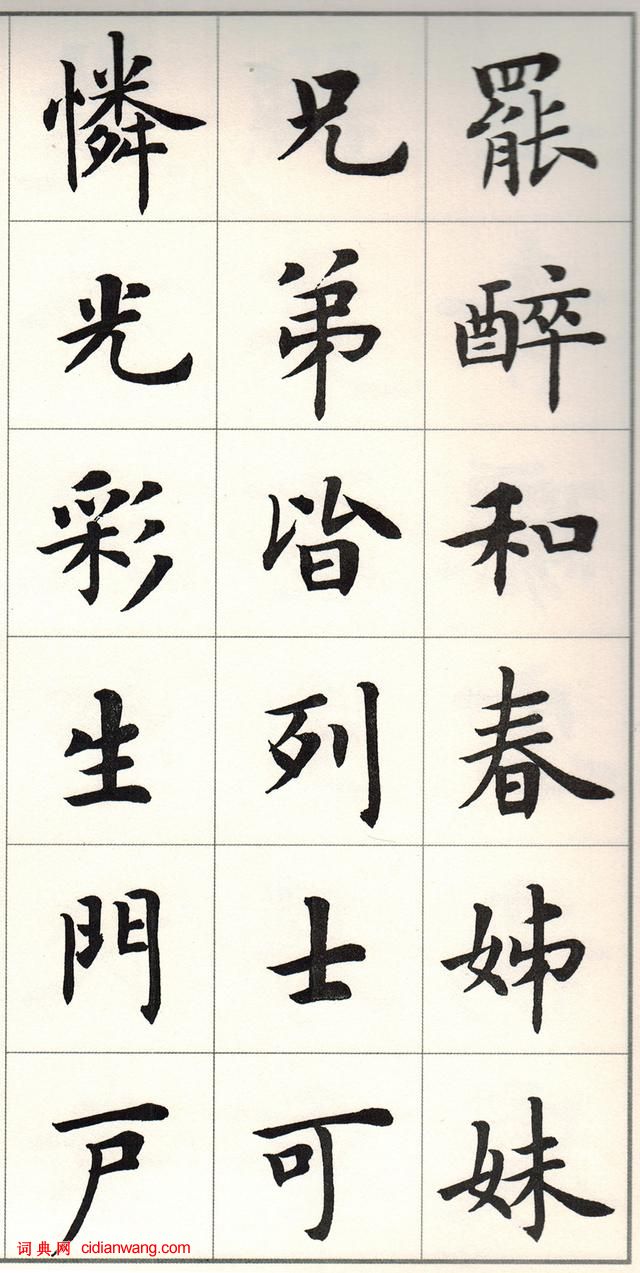 罷醉和春姊妹
兄弟皆列士可
憐光彩生門戸
词典网 cidianwang.com